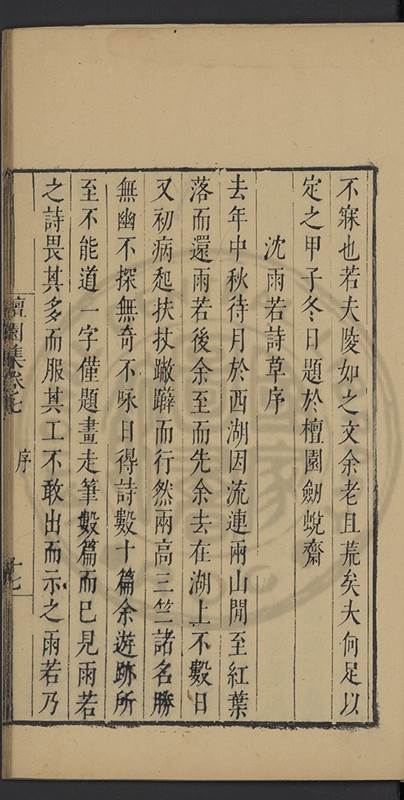 不寐也若夫陵如之文余老且荒矣大何足以
定之甲子冬日題於檀園劒蛻齋
沈雨若詩草序
去年中秋待月於西湖因流連兩山閒至紅葉
落而還雨若後余至而先余去在湖上不數日
又初病起扶杖蹩躃而行然兩高三竺諸名勝
無幽不探無奇不咏日得詩數十篇余遊跡所
至不能道一字僅題畫走筆數篇而已見雨若
之詩畏其多而服其工不敢出而示之雨若乃
檀園集卷七
序
十七